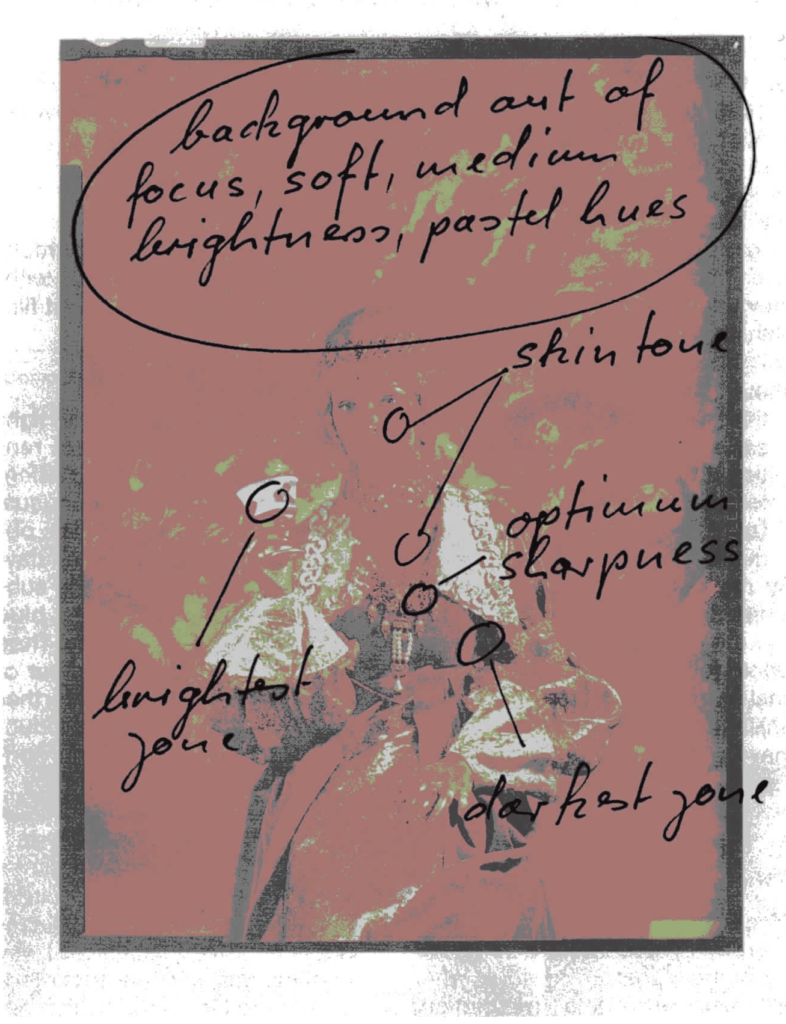 background out of
focus, soft, medium
brightness, pastel hues
skin tone
optimum
sharpness
brightest
zone
darkest zone